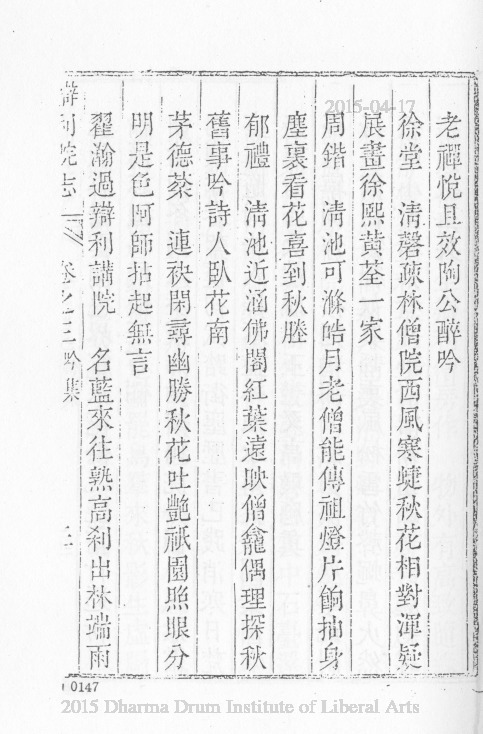 2015-04-17
老禪悅且效陶公醉吟
徐堂 清磬疎林僧院西風寒蜨秋花相對渾疑
展畫徐熙黃荃一家
周鍇 清池可滌皓月老僧能傳祖燈片餉抽身
塵裏看花喜到秋塍
郁禮 清池近涵佛閣紅葉遠映僧龕偶理探秋
舊事吟詩人臥花南
茅德棻 連袂閑尋幽勝秋花吐艷祇園照眼分
明是色阿師拈起無言
翟瀚過辯利講院 名藍來往熟高刹出林端雨
辯利院志 卷之三 吟集
0147
2015 Dharma Drum Institute of Liberal Arts